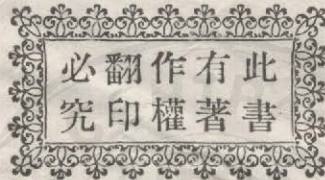 此書
有著
作權
翻印
必究